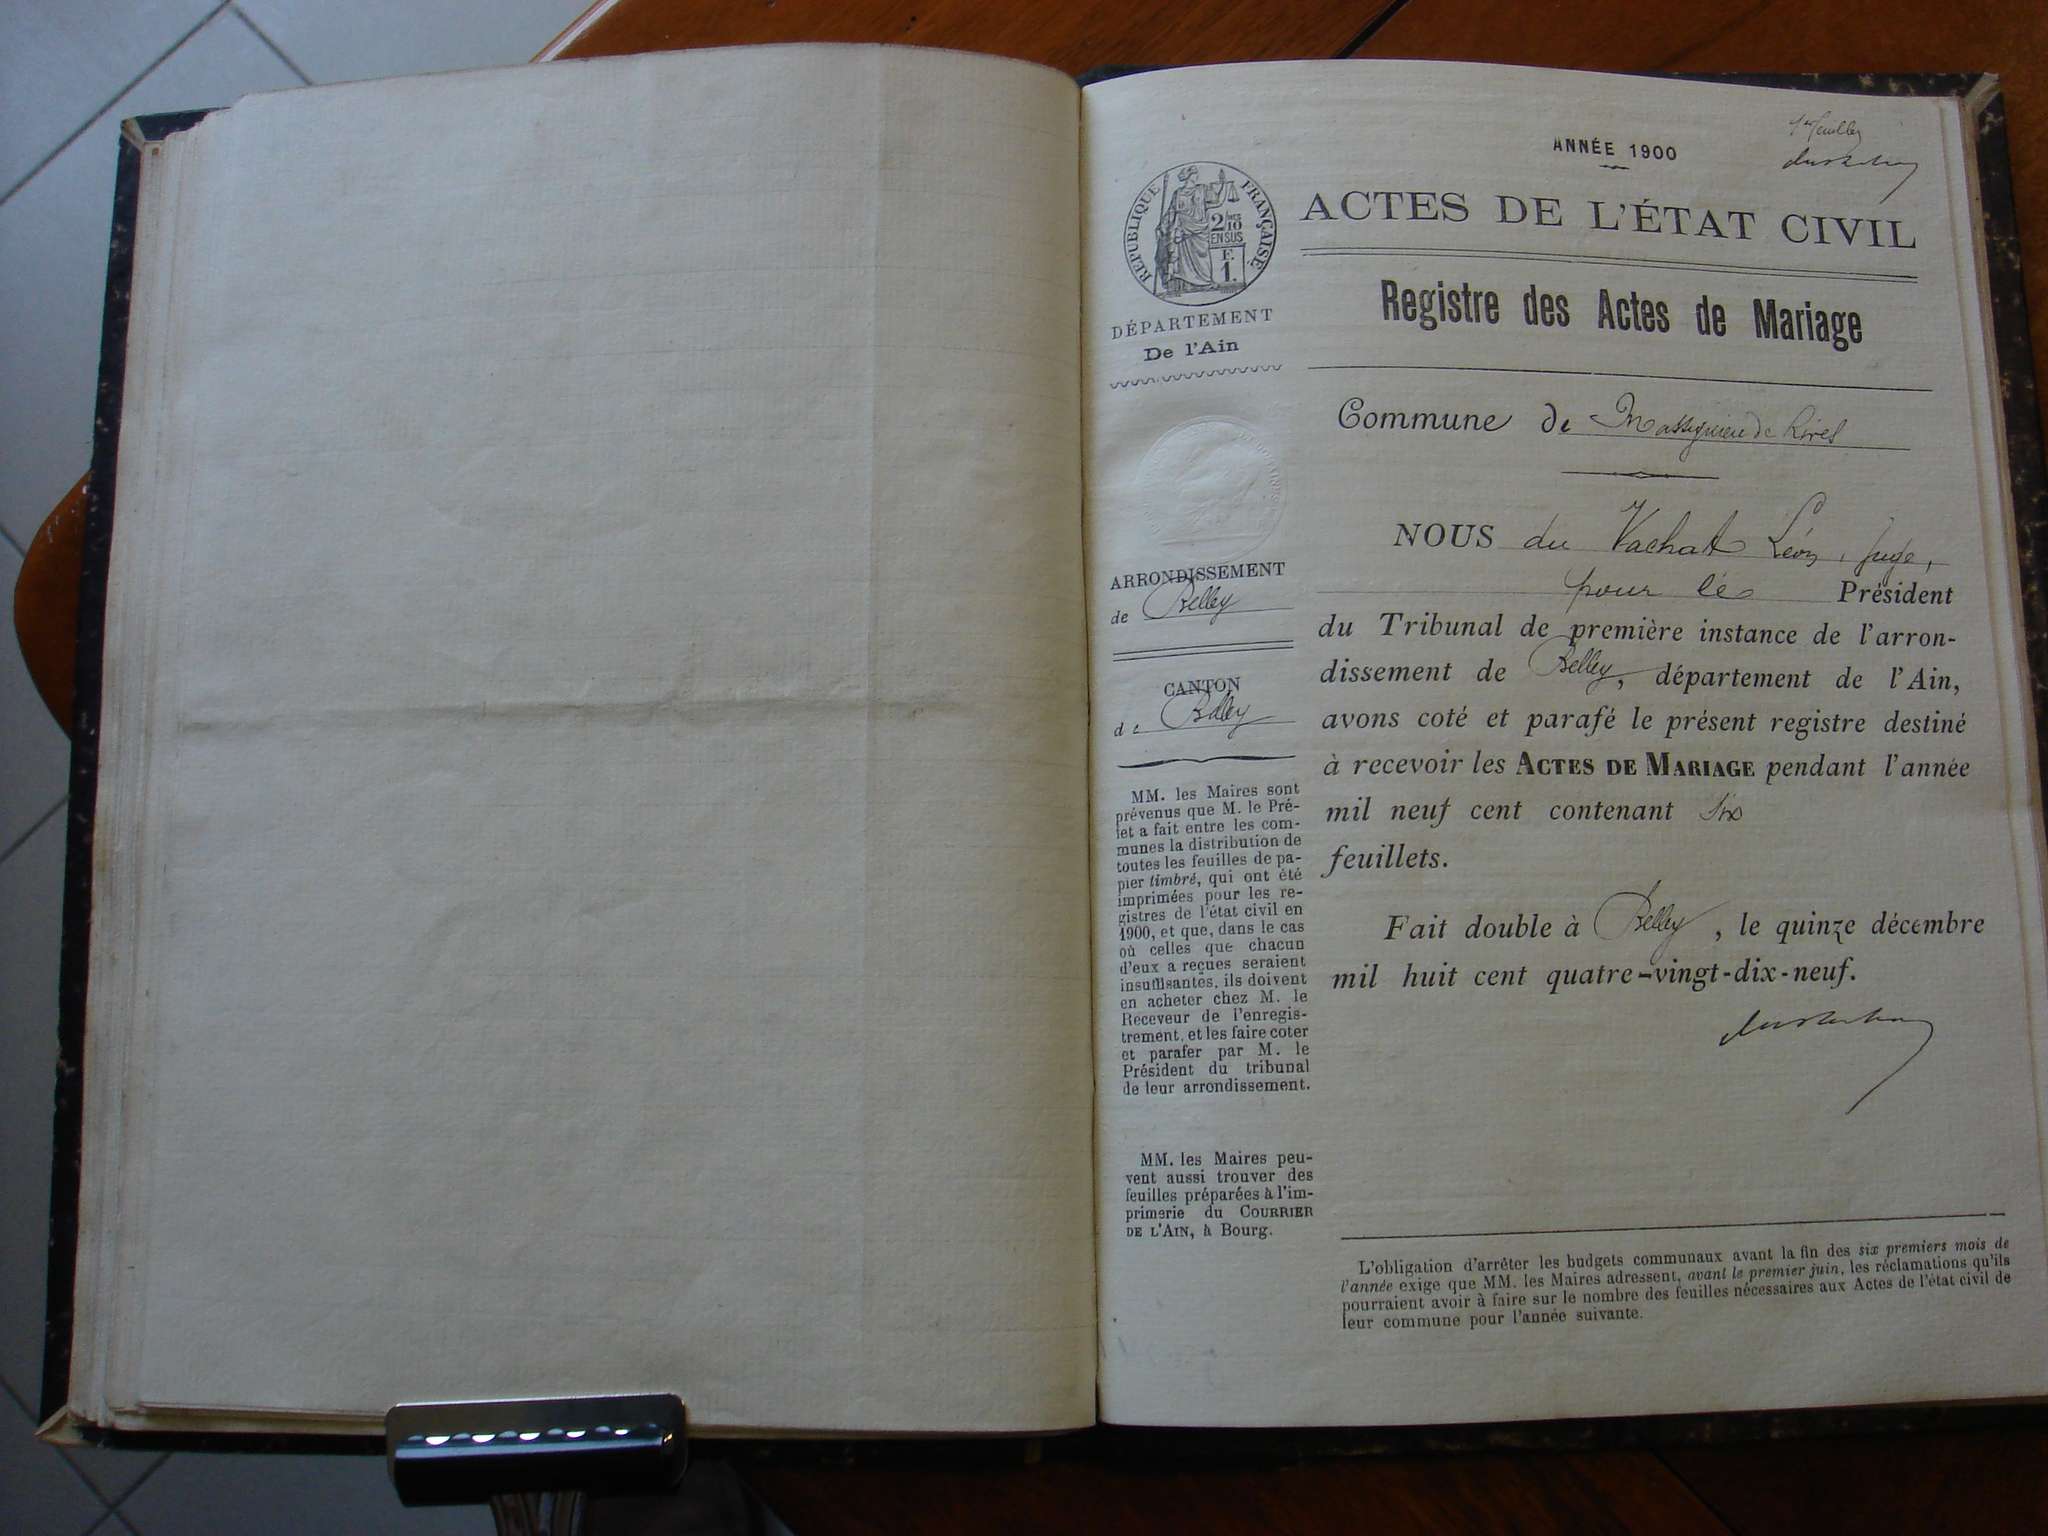 ANNÉE 1900
1er feuillet
RÉPUBLIQUE FRANÇAISE
2/10 EN SUS
F. 1.
ACTES DE L'ÉTAT CIVIL
Registre des Actes de Mariage
DÉPARTEMENT
De l'Ain
Commune de Massignieu de Rives
ARRONDISSEMENT
de Belley
CANTON
de Belley
MM. les Maires sont
prévenus que M. le Pré-
fet a fait entre les com-
munes la distribution de
toutes les feuilles de pa-
pier timbré, qui ont été
imprimées pour les re-
gistres de l'état civil en
1900, et que, dans le cas
où celles que chacun
d'eux a reçues seraient
insuffisantes, ils doivent
en acheter chez M. le
Receveur de l'enregis-
trement, et les faire coter
et parafer par M. le
Président du tribunal
de leur arrondissement.
MM. les Maires peu-
vent aussi trouver des
feuilles préparées à l'im-
primerie du COURRIER
DE L'AIN, à Bourg.
NOUS du Vachat Léon, juge,
pour le Président
du Tribunal de première instance de l'arron-
dissement de Belley, département de l'Ain,
avons coté et parafé le présent registre destiné
à recevoir les ACTES DE MARIAGE pendant l'année
mil neuf cent contenant six
feuillets.
Fait double à Belley, le quinze décembre
mil huit cent quatre-vingt-dix-neuf.
L'obligation d'arrêter les budgets communaux avant la fin des six premiers mois de
l'année exige que MM. les Maires adressent, avant le premier juin, les réclamations qu'ils
pourraient avoir à faire sur le nombre des feuilles nécessaires aux Actes de l'état civil de
leur commune pour l'année suivante.